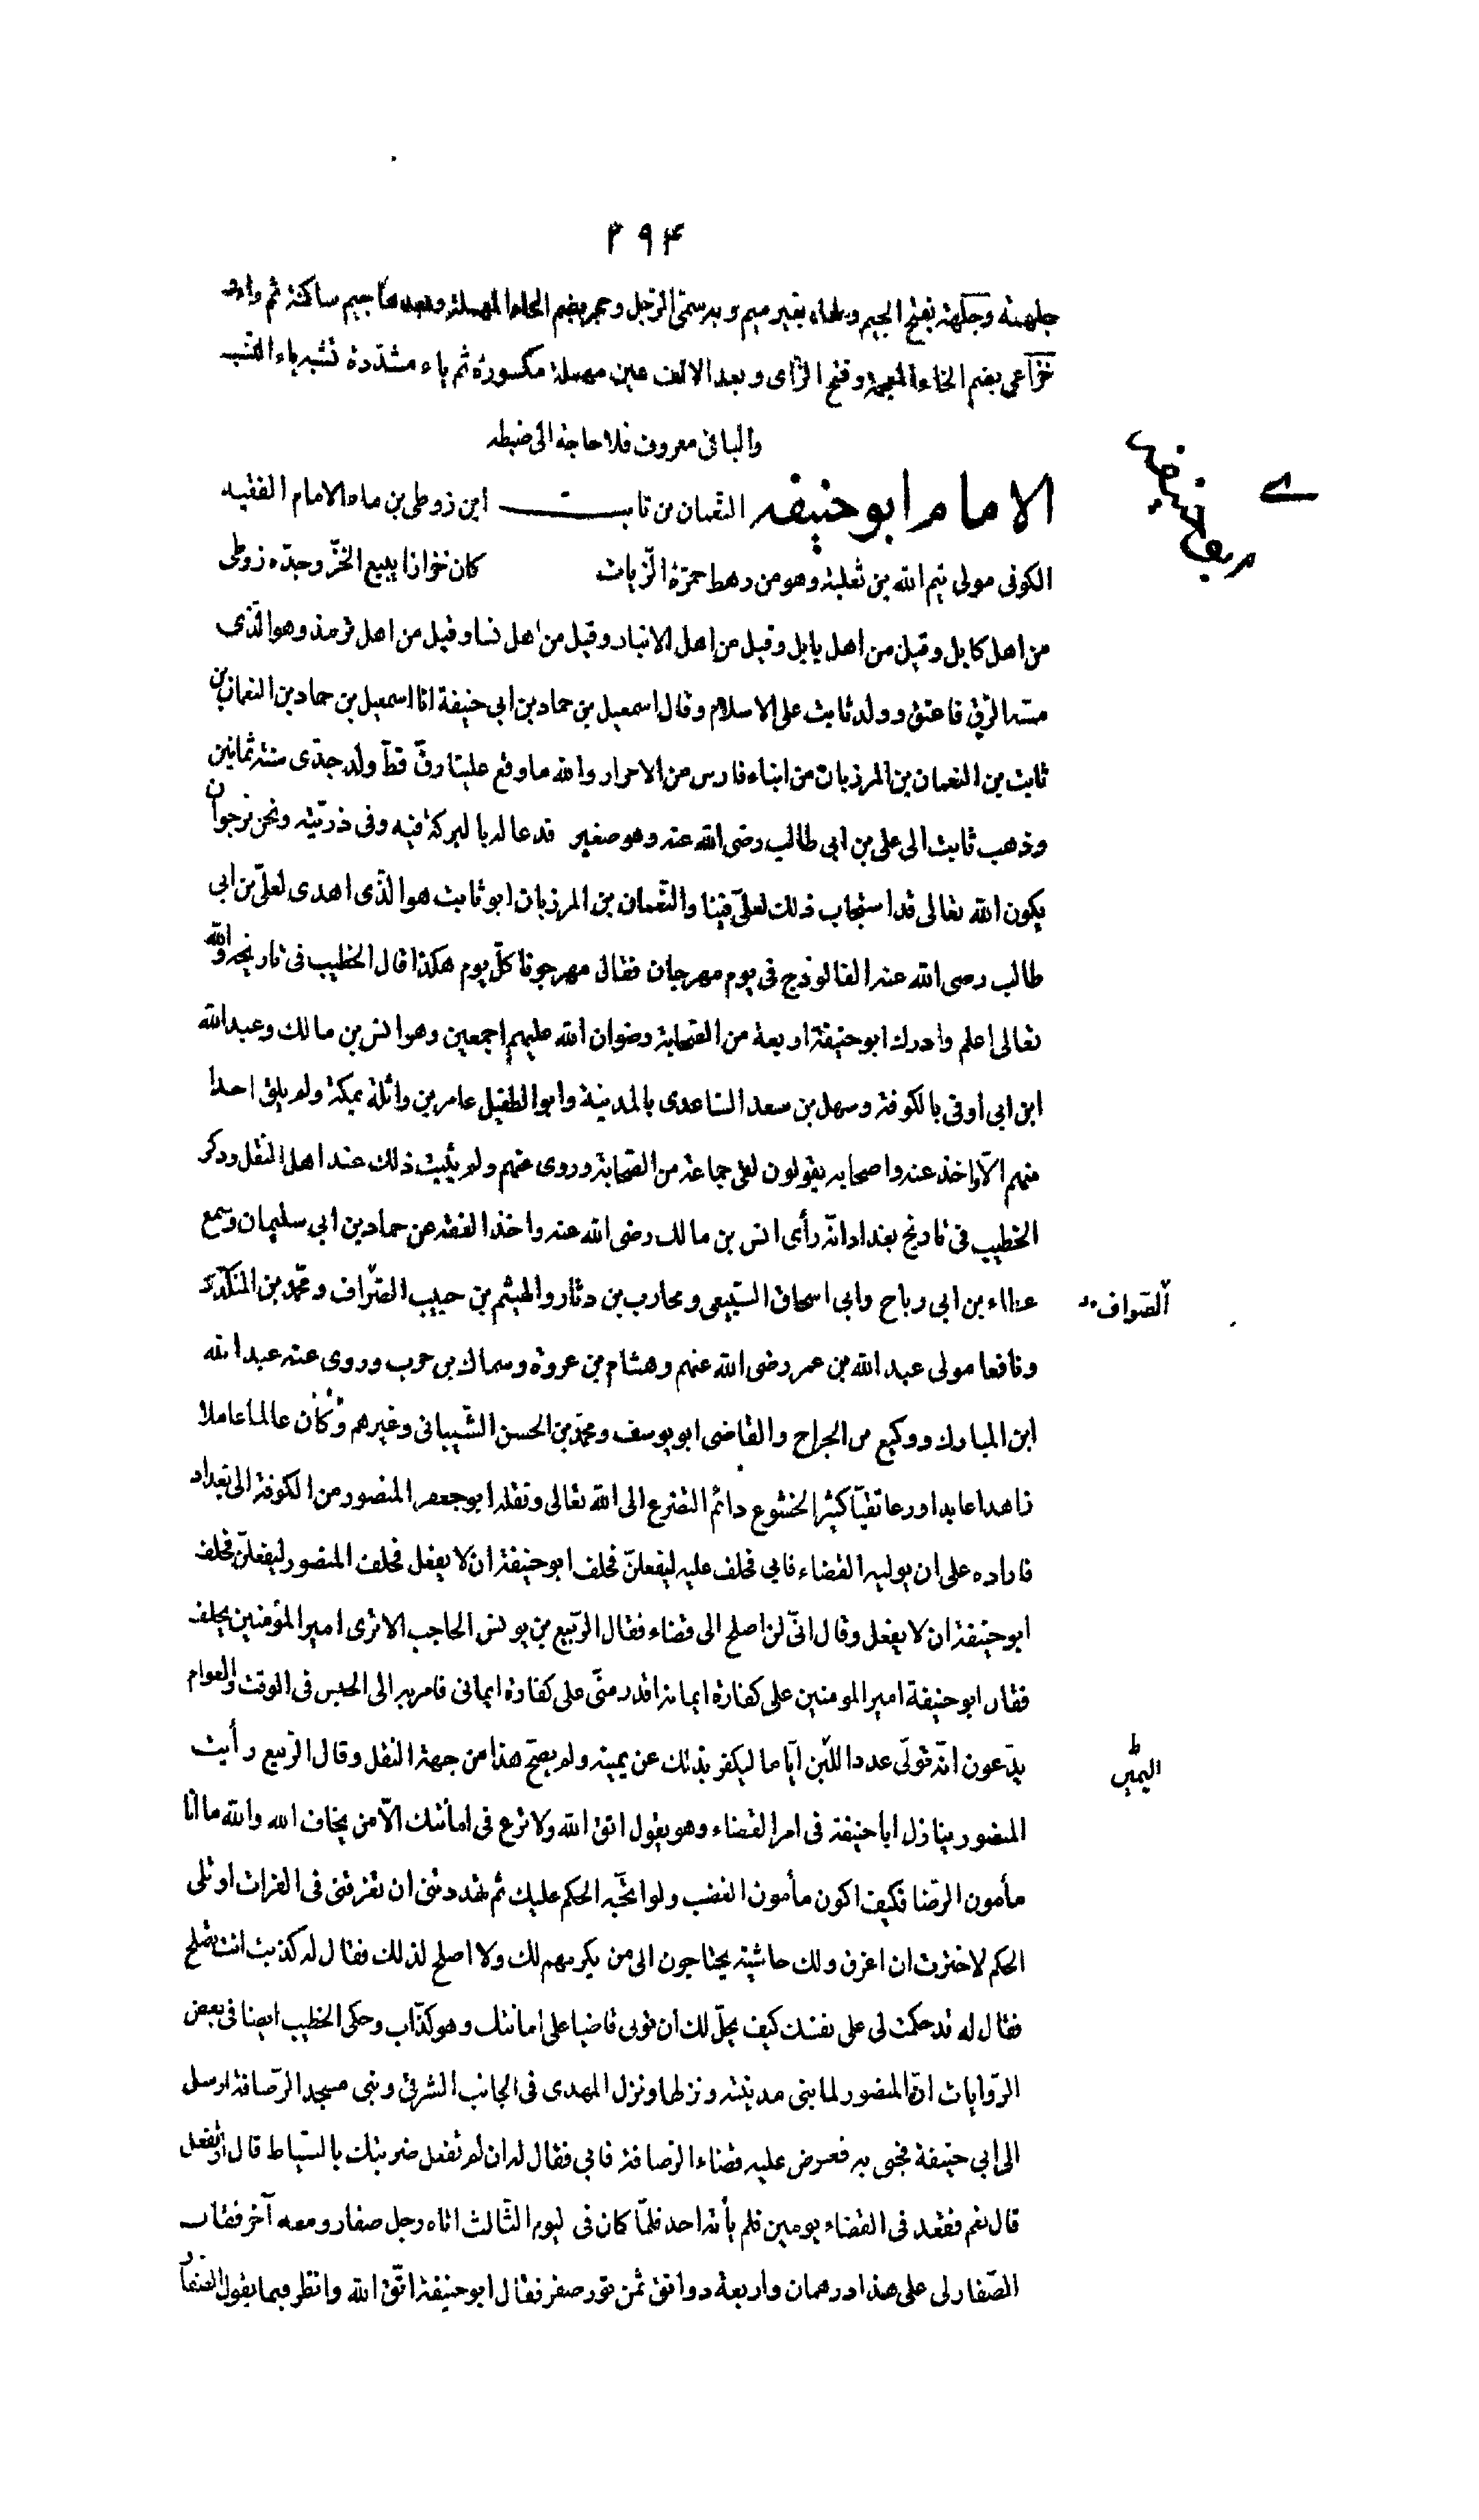 ٢٩٤
جلهمة وجلهة بفتح الجيم وبلهاء بغير ميم وبه سمّى الرّجل وحجر بضم الحاء المهملة وبعدها جيم ساكنة ثم راء
خُزاعى بضم الخاء المعجمة وفتح الزّاى وبعد الالف عين مهملة مكسورة ثم ياء مشدّدة تشبه ياء النسب
والباقى معروف فلا حاجة الى ضبطه
الامام ابو حنيفه النّعمان بن ثابت ابن زوطى بن ماه الامام الفقيه
الكوفى مولى تيم الله بن ثعلبة وهو من رهط حمزة الزّيات كان خزازا يبيع الخزّ وجدّه زوطى
من اهل كابل وقيل من اهل بابل وقيل من اهل الانبار وقيل من اهل نسا وقيل من اهل ترمذ وهو الّذى
مسّه الرّق فاعتق وولد ثابت على الاسلام وقال اسمعيل بن حماد بن ابى حنيفة انا اسمعيل بن حماد بن النعمان بن
ثابت بن النعمان بن المرزبان من ابناء فارس من الاحرار والله ما وقع علينا رقّ قطّ ولد جدّى سنة ثمانين
وذهب ثابت الى على بن ابى طالب رضى الله عنه وهو صغير قدعا له بالبركة فيه وفى ذرّيته ونحن نرجوان
يكون الله تعالى قد استجاب ذلك لعلىّ فينا والنّعمان بن المرزبان ابو ثابت هو الّذى اهدى لعلىّ بن ابى
طالب رضى الله عنه الفالوذج فى يوم مهرجان فقال مهرجونا كلّ يوم هكذا قال الخطيب فى تاريخه والله
تعالى اعلم وادرك ابو حنيفة اربعة من الصّحابة رضوان الله عليهم اجمعين وهو انس بن مالك وعبد الله
ابن ابى اوفى بالكوفة وسهل بن سعد السّاعدى بالمدينة وابو الطفيل عامر بن واثلة بمكة ولم يلق احدا
منهم الّا واخذ عنه واصحابه يقولون لقى جماعة من الصّحابة وروى عنهم ولم يثبت ذلك عند اهل النّقل وذكر
الخطيب فى تاريخ بغداد انّه رأى انس بن مالك رضى الله عنه واخذ الفقه عن حماد بن ابى سليمان وسمع
عطاء بن ابى رباح وابى اسحاق السّبيعى ومحارب بن دثار والهيثم بن حبيب الصّراف ومحمّد بن المنكدر
الصّواف
ونافعا مولى عبد الله بن عمر رضى الله عنهم وهشام بن عروة وسماك بن حرب وروى عنه عبد الله
ابن المبارك ووكيع بن الجراح والقاضى ابو يوسف ومحمّد بن الحسن الشّيبانى وغيرهم وكان عالما عاملا
زاهدا عابدا ورعا تقيّا كثير الخشوع دائم التضرع الى الله تعالى ونقله ابو جعفر المنصور من الكوفة الى بغداد
فاراده على ان يوليه القضاء فابى فحلف عليه ليفعلنّ فحلف ابو حنيفة ان لا يفعل فحلف المنصور ليفعلنّ فحلف
ابو حنيفة ان لا يفعل وقال انّى لن اصلح الى قضاء فقال الرّبيع بن يونس الحاجب الا ترى امير المؤمنين يحلف
فقال ابو حنيفة امير المومنين على كفارة ايمانه اقدر منّى على كفارة ايمانى فامر به الى الحبس فى الوقت والعوام
يدّعون انّه تولّى عدد اللّبن ايّاما ليكفر بذلك عن يمينه ولم يصحّ هذا من جهة النقل وقال الرّبيع رأيت
اليمين
المنصور ينازل ابا حنيفة فى امر القضاء وهو يقول اتق الله ولا ترع فى امانتك الّا من يخاف الله والله ما انا
مأمون الرضا فكيف اكون مأمون الغضب ولو اتجّه الحكم عليك ثم تهددتنى ان تغرقنى فى الفرات او تلى
الحكم لاخترت ان اغرق ولك حاشية يحتاجون الى من يكرمهم لك ولا اصلح لذلك فقال له كذبت انت تصلح
فقال له قد حكمت لى على نفسك كيف يحلّ لك ان تولى قاضيا على امانتك وهو كذّاب وحكى الخطيب ايضا فى بعض
الرّوايات انّ المنصور لما بنى مدينته ونزلها ونزل المهدى فى الجانب الشرقى وبنى مسجد الرّصافة ارسل
الى ابى حنيفة فجىء به فعرض عليه قضاء الرّصافة فابى فقال له ان لم تفعل ضربتك بالسّياط قال اوتفعل
قال نعم فقعد فى القضاء يومين فلم يأته احد فلمّا كان فى اليوم الثّالث اتاه رجل صفار ومعه آخر فقال
الصّفار لى على هذا درهمان واربعة دوانق ثمن تور صفر فقال ابو حنيفة اتّق الله وانظر فيما يقول الصفار